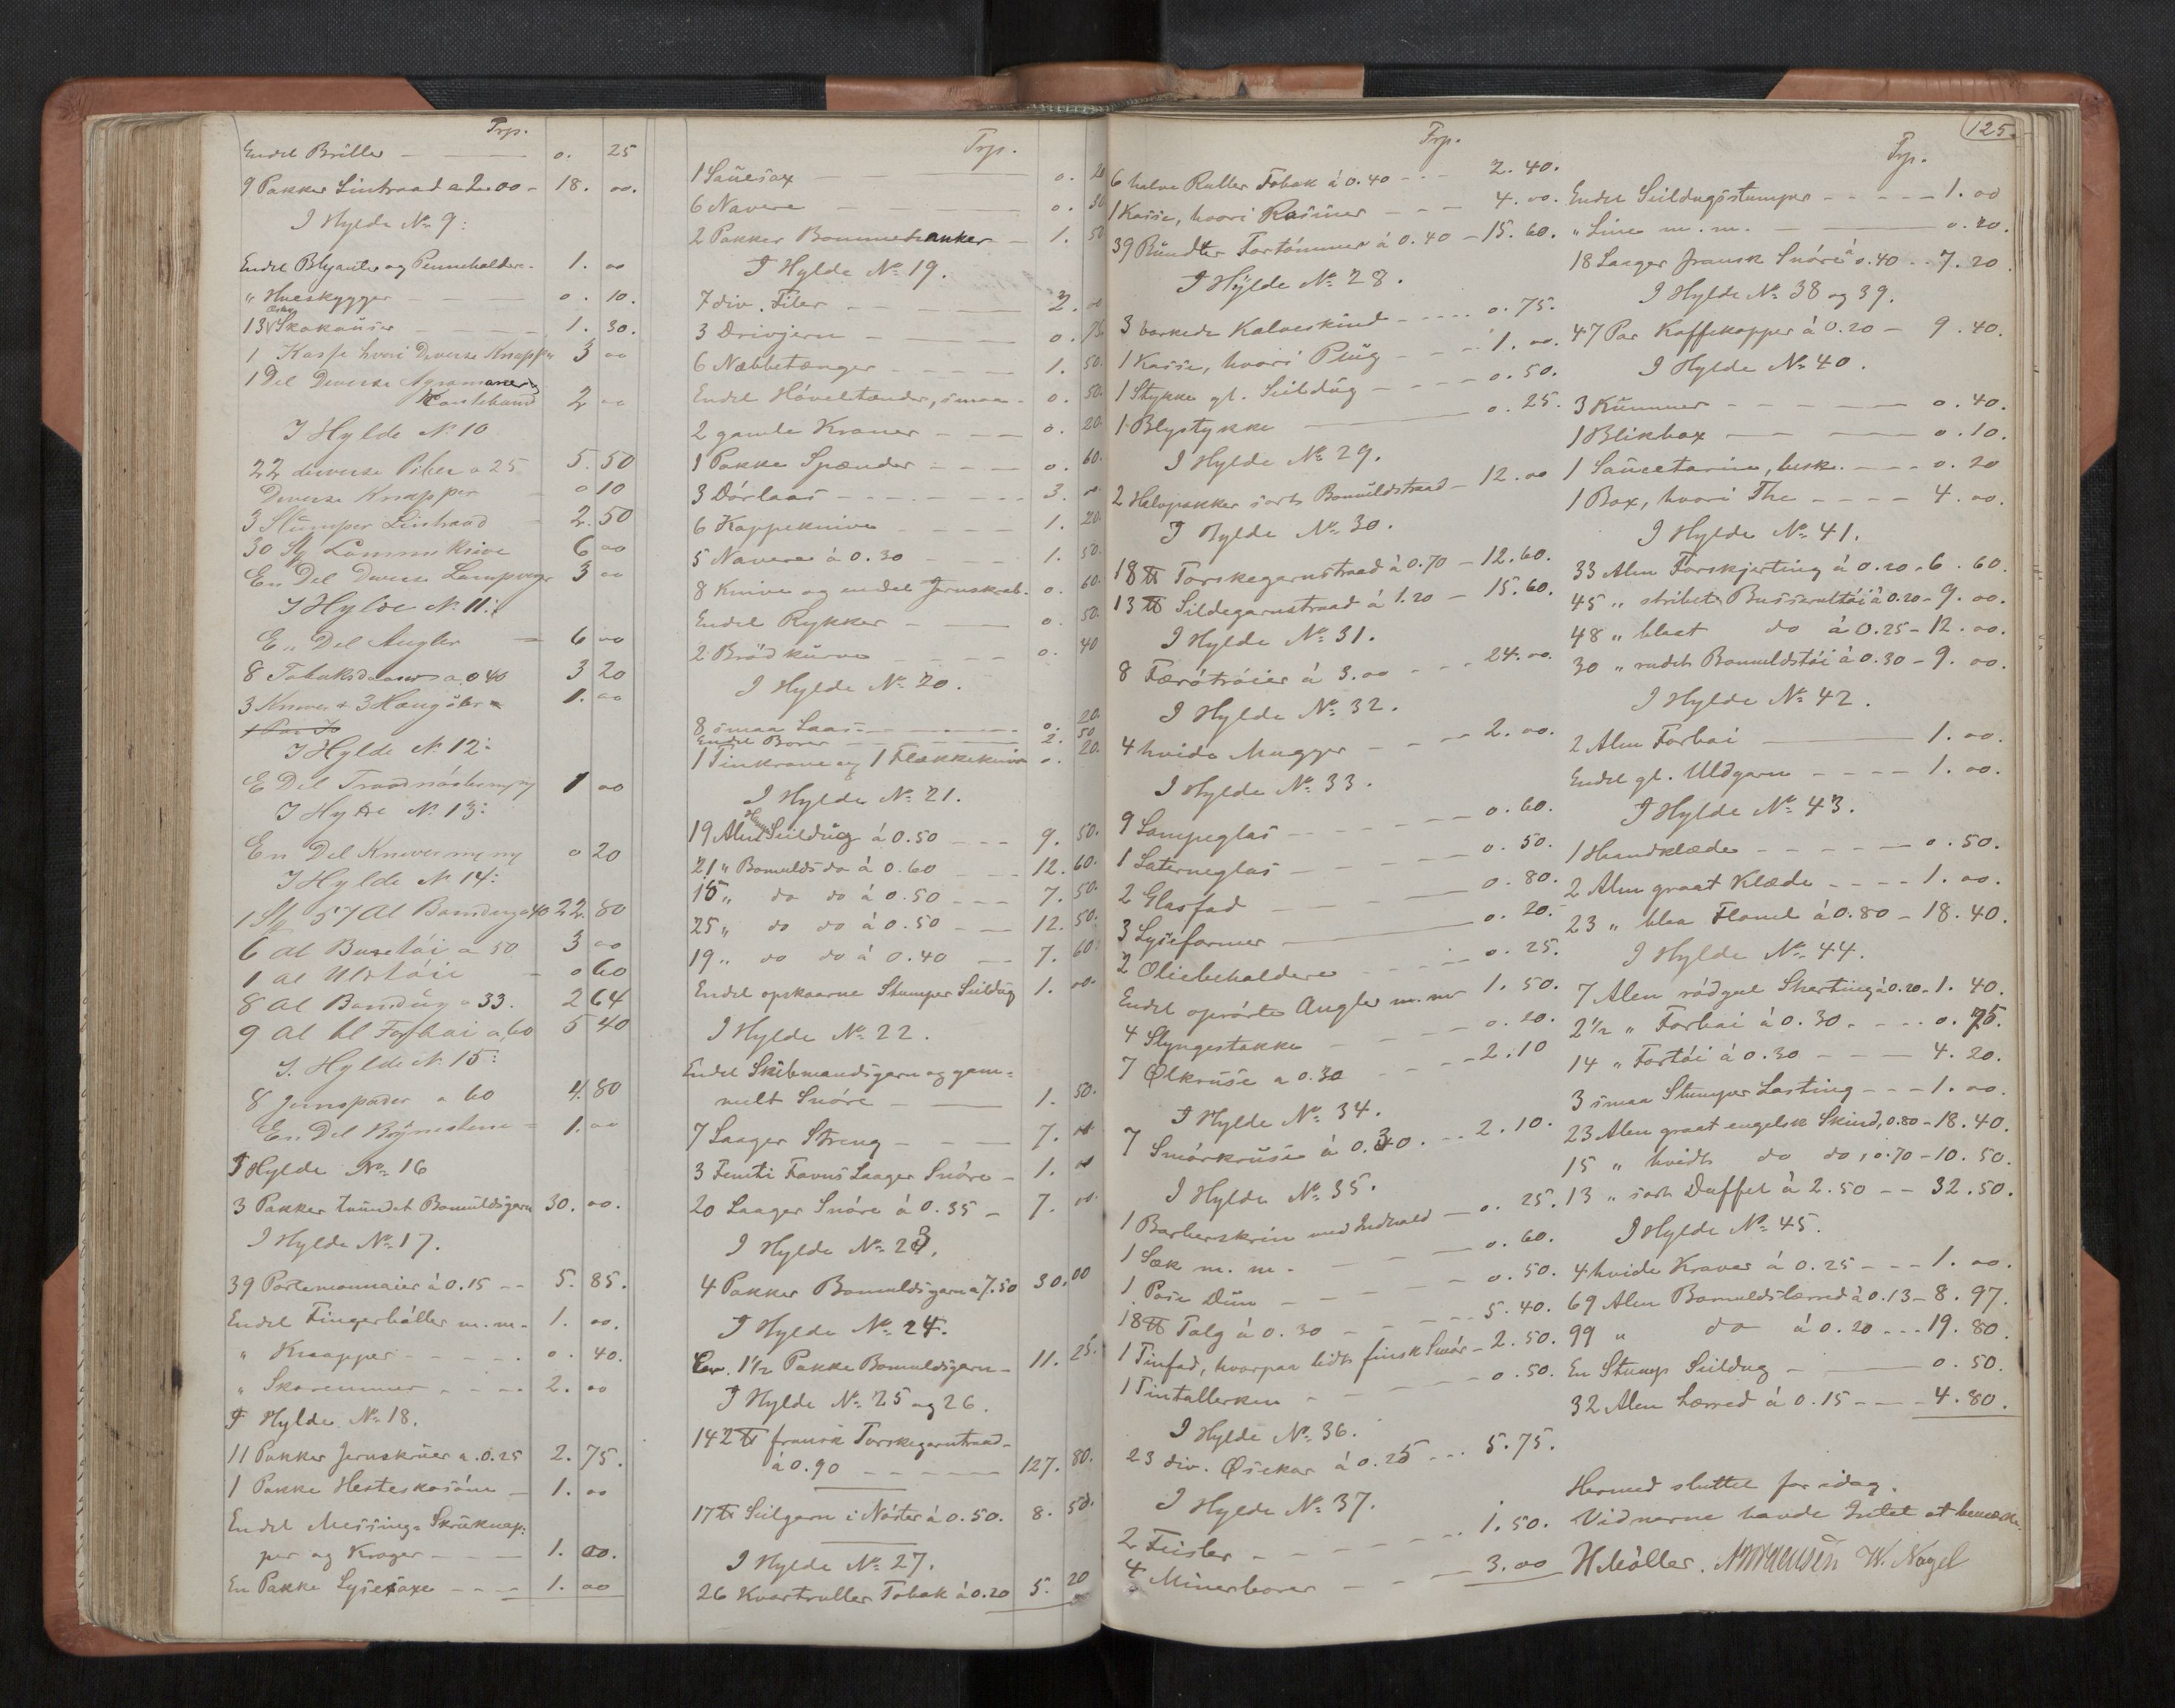 Trp.
Endel Briller — — o. 25
9 Pakker Lintraad a 2.00 - 18. 00.
I Hylde No 9:
Endel Blyanter og Penneholdere - 1. 00
" Hueskygger — — — o. 10.
13 Æsker Skokauser — — 1. 30.
1 Kasse hvori Diverse Knapper 3 00
1 Del Diverse Agramaner og
Kantebaand 2 00
I Hylde No 10
22 diverse Piber a 25 5. 50
Diverse Knapper - o 10
3 Stumper Lintraad - 2. 50
30 St Lommeknive 6 00
En Del Diverse Lampveger 3 00
I Hylde No 11:
En Del Angler = 6 00
8 Tobaksdaaser a 0 40 3 20
3 Kniver + 3 Hængsler 1. 00
I Hylde No 12:
E Del Traadnøster 1 00
I Hylde No 13:
En Del Kniver o 20
I Hylde No 14:
1 St 57 Al Bomdug a 40 22. 80
6 Al Busetöi a 50 3 00
1 Al Uldtöii - o 60
8 Al Bomdug a 33. 2 64
9 Al bl Forbai a 60 5 40
I. Hylde No 15:
8 Jernspader a 60 4. 80
En Del Brynestene = 1. 00
I Hylde No 16
3 Pakker tvundet Bomuldsgarn 30. 00.
I Hylde No 17.
39 Portemonnaier á 0.15 -- 5. 85.
Endel Fingerböller m.m. - 1. 00.
" Knapper - - - - - o. 40.
" Skoremmer - - - - 2. 00
I Hylde No 18.
11 Pakker Jernskruer a. 0.25 2. 75.
1 Pakke Hesteskosöm — 1. 00
Endel Messing- Skruknap-
per og Kroger — — 1. 00.
En Pakke Lysesaxe - - - 1. 00
Trp.
1 Sauesax — — — o. 20
6 Navere — — — o. 30
2 Pakker Bommehanker — 1. 50
I Hylde No 19.
7 div. Filer — — — 2. 00
3 Drivjern — — — o. 75
6 Næbbetænger — — — 1. 50.
Endel Höveltænder, smaa - o. 50.
2 gamle Kraner — — — o. 20.
1 Pakke Spænder - — — o. 60.
3 Dörlaas - - - - - - 3. 00.
6 Kappeknive — — — 1. 20.
5 Navere á 0.30 — — 1. 50.
8 Knive og endel Jernskrab. o. 60.
Endel Rykker — — — o. 50.
2 Brödkurve — — — o. 40
I Hylde No 20.
8 smaa Laase — — — o. 20.
Endel Borer — — — 2. 50
1 Tinkrane og 1 Flækkekniv o. 20.
I Hylde No 21.
19 Alen Hampe Seildug á 0.50 — — 9. 50.
21 " Bomulds do á 0.60 — 12. 60.
15 " do do á 0.50 - - - 7. 50.
25 " do do á 0.50 — — 12. 50.
19 " do do á 0.40 — — 7. 60.
Endel opskaarne Stumper Seildug 1. 00.
I Hylde No 22.
Endel Skibmandsgarn og gam-
melt Snöre — — 1. 50.
7 Laager Streng — — — 7. 00
3 Femti Favns Laager Snöre - 1. 00
20 Laager Snöre á 0.35 — 7. 00.
I Hylde No 23.
4 Pakker Bomuldsgarn a 7.50 30. 00
I Hylde No 24.
Ca. 1½ Pakke Bomuldsgarn — 11. 25.
I Hylde No 25 og 26.
142 ℔ fransk Torskegarntraad -
á 0.90 — — — 127. 80.
17 ℔ Seilgarn i Nöster á 0.50. 8. 50.
I Hylde No 27.
26 Kvartruller Tobak á 0.20 5. 20
125.
Trp.
6 halve Ruller Tobak á 0.40 - - - 2. 40.
1 Kasse, hvori Rosiner — — — 4. 00.
39 Bundter Fortömmer á 0.40 — 15. 60.
I Hylde No 28.
3 barkede Kalveskind - - - - 0. 75.
1 Kasse, hvori Plüg - - - 1. 00.
1 Stykke gl. Seildug - - - - 0. 50.
1 Blystykke — — 0. 25.
I Hylde No 29.
2 Halvpakker sort Bomuldstraad — 12. 00
I Hylde No 30.
18 ℔ Torskegarnstraad á 0.70 — 12. 60.
13 ℔ Sildegarnstraad á 1.20 — 15. 60.
I Hylde No 31.
8 Færötröier á 3.00 - - - 24. 00.
I Hylde No 32.
4 hvide Mugger - - - 2. 00.
I Hylde No 33.
9 Lampeglas - - - - 0. 60.
1 Laterneglas — — — 0. 50.
2 Glasfad — — — 0. 80.
3 Lyseformer — — 0. 20.
2 Oliebeholdere — — — 0. 25.
Endel oprörte Angler m.m 1. 50.
4 Slyngestakke — — — 0. 20.
7 Ølkruse a 0.30 - - - 2. 10
I Hylde No 34.
7 Smörkruse á 0.30. - - 2. 10.
I Hylde No 35.
1 Barberskrin med Indhold — 0. 25.
1 Sæk m. m. — — — 0. 60.
1 Pose Dun — — — 0. 50.
18 ℔ Talg á 0.30 — — — 5. 40.
1 Tinfad, hvorpaa lidt finsk Smör - 2. 50.
1 Tintallerken - - - - 0. 50.
I Hylde No 36.
23 div. Øsekar á 0.25 - - - 5. 75.
I Hylde No 37.
2 Feisler - - - - - - 1. 50.
4 Minerborer — — — 3. 00
Trp.
Endel Seildugsstumper - - - - - 1. 00
" Liner m. m. — — 0. 20.
18 Laager fransk Snöre á 0.40 - - 7. 20.
I Hylde No 38 og 39.
47 Par Kaffekopper á 0.20 — 9. 40.
I Hylde No 40.
3 Kummer - - - - — 0. 40.
1 Blikbox — — — 0. 10.
1 Saucetarin, besk. - - - - 0. 20
1 Box, hvori The - - - - 4. 00.
I Hylde No 41.
33 Alen Forskjerting á 0.20 - 6. 60.
45 " stribet Busseroltöi á 0.20 - 9. 00.
48 " blaat do á 0.25 - 12. 00.
30 " rudet Bomuldstöi á 0.30 - 9. 00.
I Hylde No 42.
2 Alen Forbai — — 1. 00.
Endel gl. Uldgarn - - - - 1. 00.
I Hylde No 43.
1 Haandklæde - - - - - - 0. 50.
2 Alen graat Klæde - - - - 1. 00.
23 " blaa Flonel á 0.80 - 18. 40.
I Hylde No 44.
7 Alen rödgul Skerting á 0.20 - 1. 40.
2½ " Forbai á 0.30. - - - 0. 75.
14 " Fortöi á 0.30 — — — 4. 20.
3 smaa Stumper Lasting - - - 1. 00.
23 Alen graat engelsk Skind, 0.80 - 18. 40.
15 " hvidt do do, 0.70 - 10. 50.
13 " sort Duffel á 2.50 - - 32. 50.
I Hylde No 45.
4 hvide Kraver á 0.25 - - - 1. 00.
69 Alen Bomuldslærred á 0.13 - 8. 97.
99 " do á 0.20 - - - 19. 80.
En Stump Seildug — — 0. 50.
32 Alen Lærred á 0.15 - - - - 4. 80.
Hermed sluttet for idag.
Vidnerne havde Intet at bemærke.
H Möller. W. Nagel